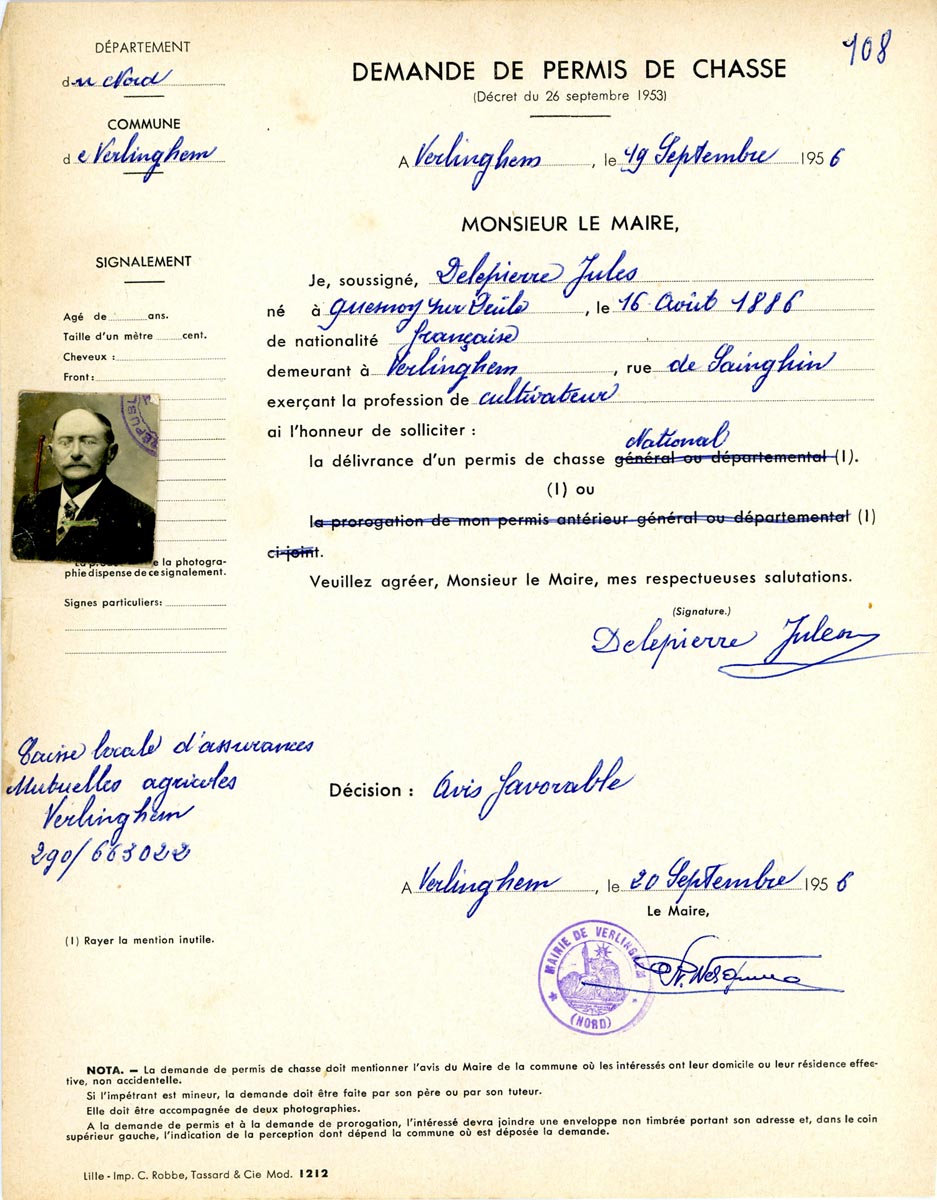 DÉPARTEMENT
du Nord
COMMUNE
de Verlinghem
108
DEMANDE DE PERMIS DE CHASSE
(Décret du 26 septembre 1953)
A Verlinghem, le 19 Septembre 1956
MONSIEUR LE MAIRE,
SIGNALEMENT
Agé de ans.
Taille d'un mètre cent.
Cheveux :
Front :
REPUBL
la photogra-
phie dispense de ce signalement.
Signes particuliers :
Je, soussigné, Delepierre Jules
né à Quesnoy sur Deûle, le 16 Août 1886
de nationalité française
demeurant à Verlinghem, rue de Sainghin
exerçant la profession de cultivateur
ai l'honneur de solliciter :
National
la délivrance d'un permis de chasse général ou départemental (I).
(I) ou
la prorogation de mon permis antérieur général ou départemental (I)
ci-joint.
Veuillez agréer, Monsieur le Maire, mes respectueuses salutations.
(Signature.)
Delepierre Jules
Caisse locale d'assurances
Mutuelles agricoles
Verlinghem
290/663022
Décision : Avis favorable
A Verlinghem, le 20 Septembre 1956
Le Maire,
MAIRIE DE VERLINGHEM
(NORD)
(I) Rayer la mention inutile.
NOTA. — La demande de permis de chasse doit mentionner l'avis du Maire de la commune où les intéressés ont leur domicile ou leur résidence effec-
tive, non accidentelle.
Si l'impétrant est mineur, la demande doit être faite par son père ou par son tuteur.
Elle doit être accompagnée de deux photographies.
A la demande de permis et à la demande de prorogation, l'intéressé devra joindre une enveloppe non timbrée portant son adresse et, dans le coin
supérieur gauche, l'indication de la perception dont dépend la commune où est déposée la demande.
Lille - Imp. C. Robbe, Tassard & Cie Mod. 1212